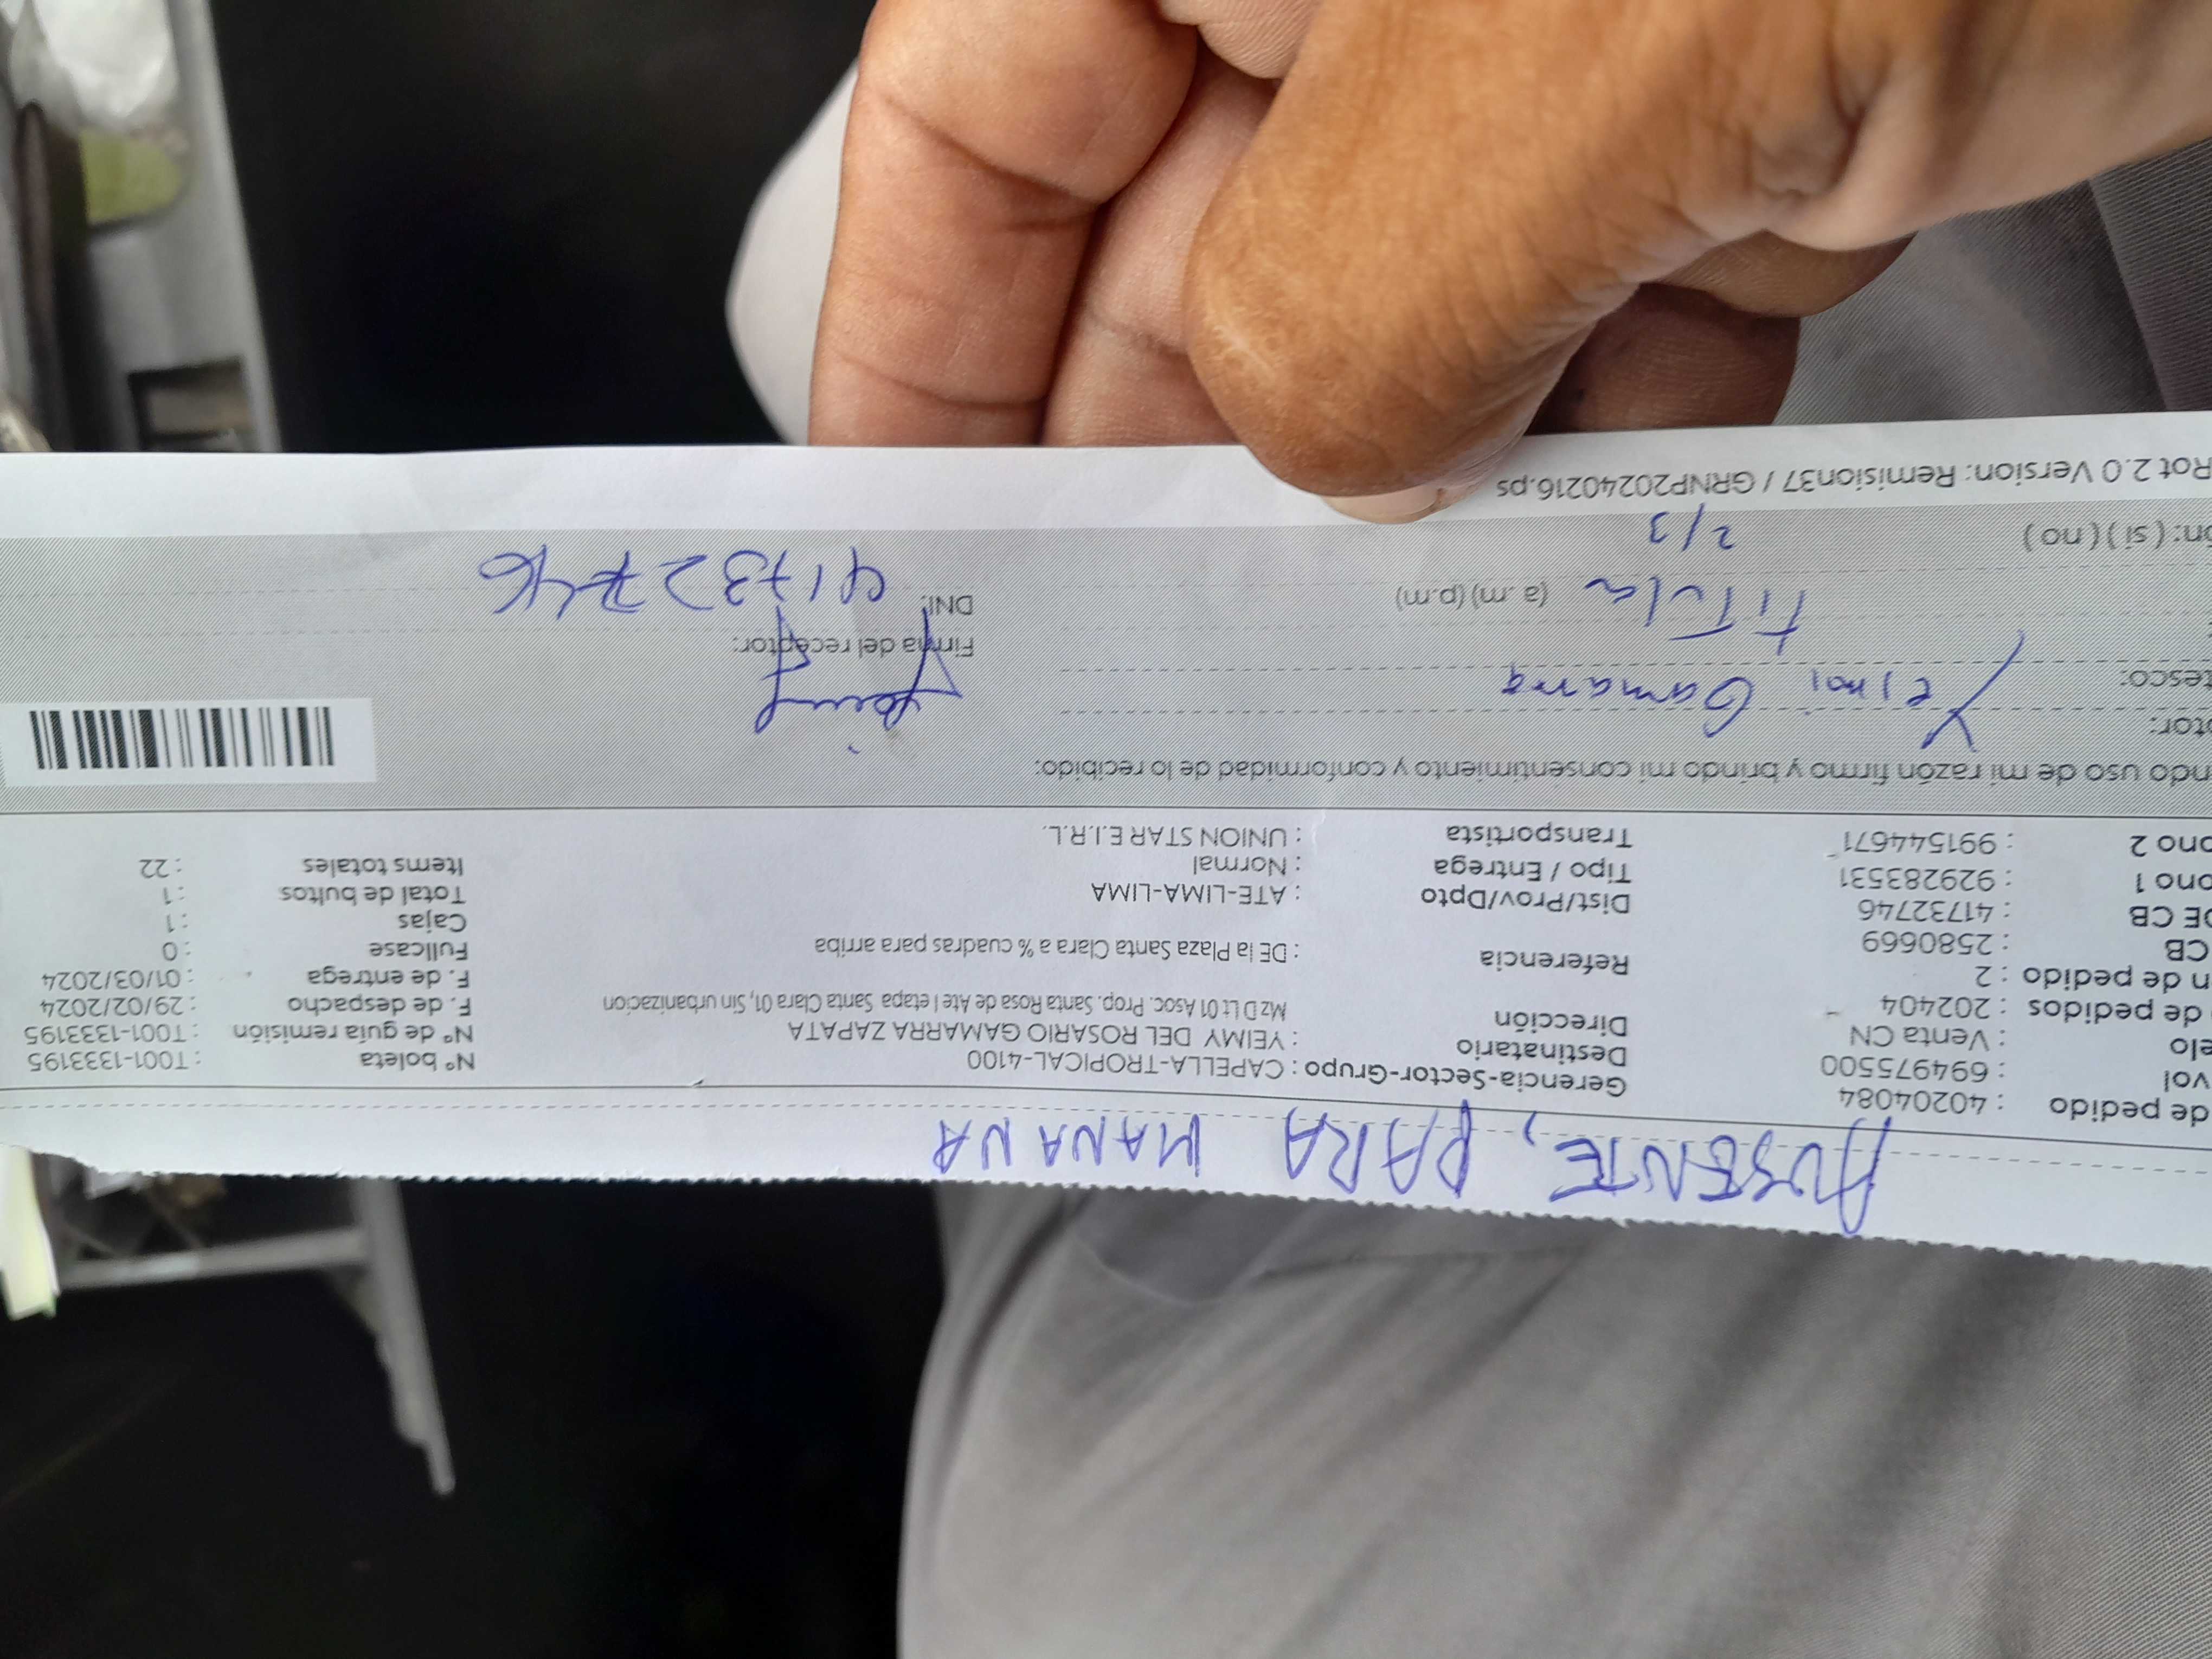 AUSENTE, PARA MANANA
de pedido : 40204084
vol : 694975500
elo : Venta CN
de pedidos : 202404
n de pedido : 2
CB : 2580669
DE CB : 41732746
ono 1 : 929283531
ono 2 : 991544671
Gerencia-Sector-Grupo : CAPELLA-TROPICAL-4100
Destinatario : YEIMY DEL ROSARIO GAMARRA ZAPATA
Dirección Mz D Lt 01 Asoc. Prop. Santa Rosa de Ate I etapa Santa Clara 01, Sin urbanizacion
Referencia : DE la Plaza Santa Clara a % cuadras para arriba
Dist/Prov/Dpto : ATE-LIMA-LIMA
Tipo / Entrega : Normal
Transportista : UNION STAR E.I.R.L.
N° boleta : T001-1333195
N° de guía remisión : T001-1333195
F. de despacho : 29/02/2024
F. de entrega : 01/03/2024
Fullcase : 0
Cajas : 1
Total de bultos : 1
Items totales : 22
ndo uso de mi razón firmo y brindo mi consentimiento y conformidad de lo recibido:
ptor: Yeimi Gamarra
tesco: titula
(a .m) (p.m)
ón: ( si ) ( no ) 2/3
Firma del receptor:
DNI: 41732746
Rot 2.0 Version: Remision37 / GRNP20240216.ps